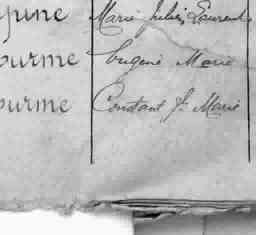 Marie Julien Laurent
ourme Eugène Marie
ourme Constant Fs Marie